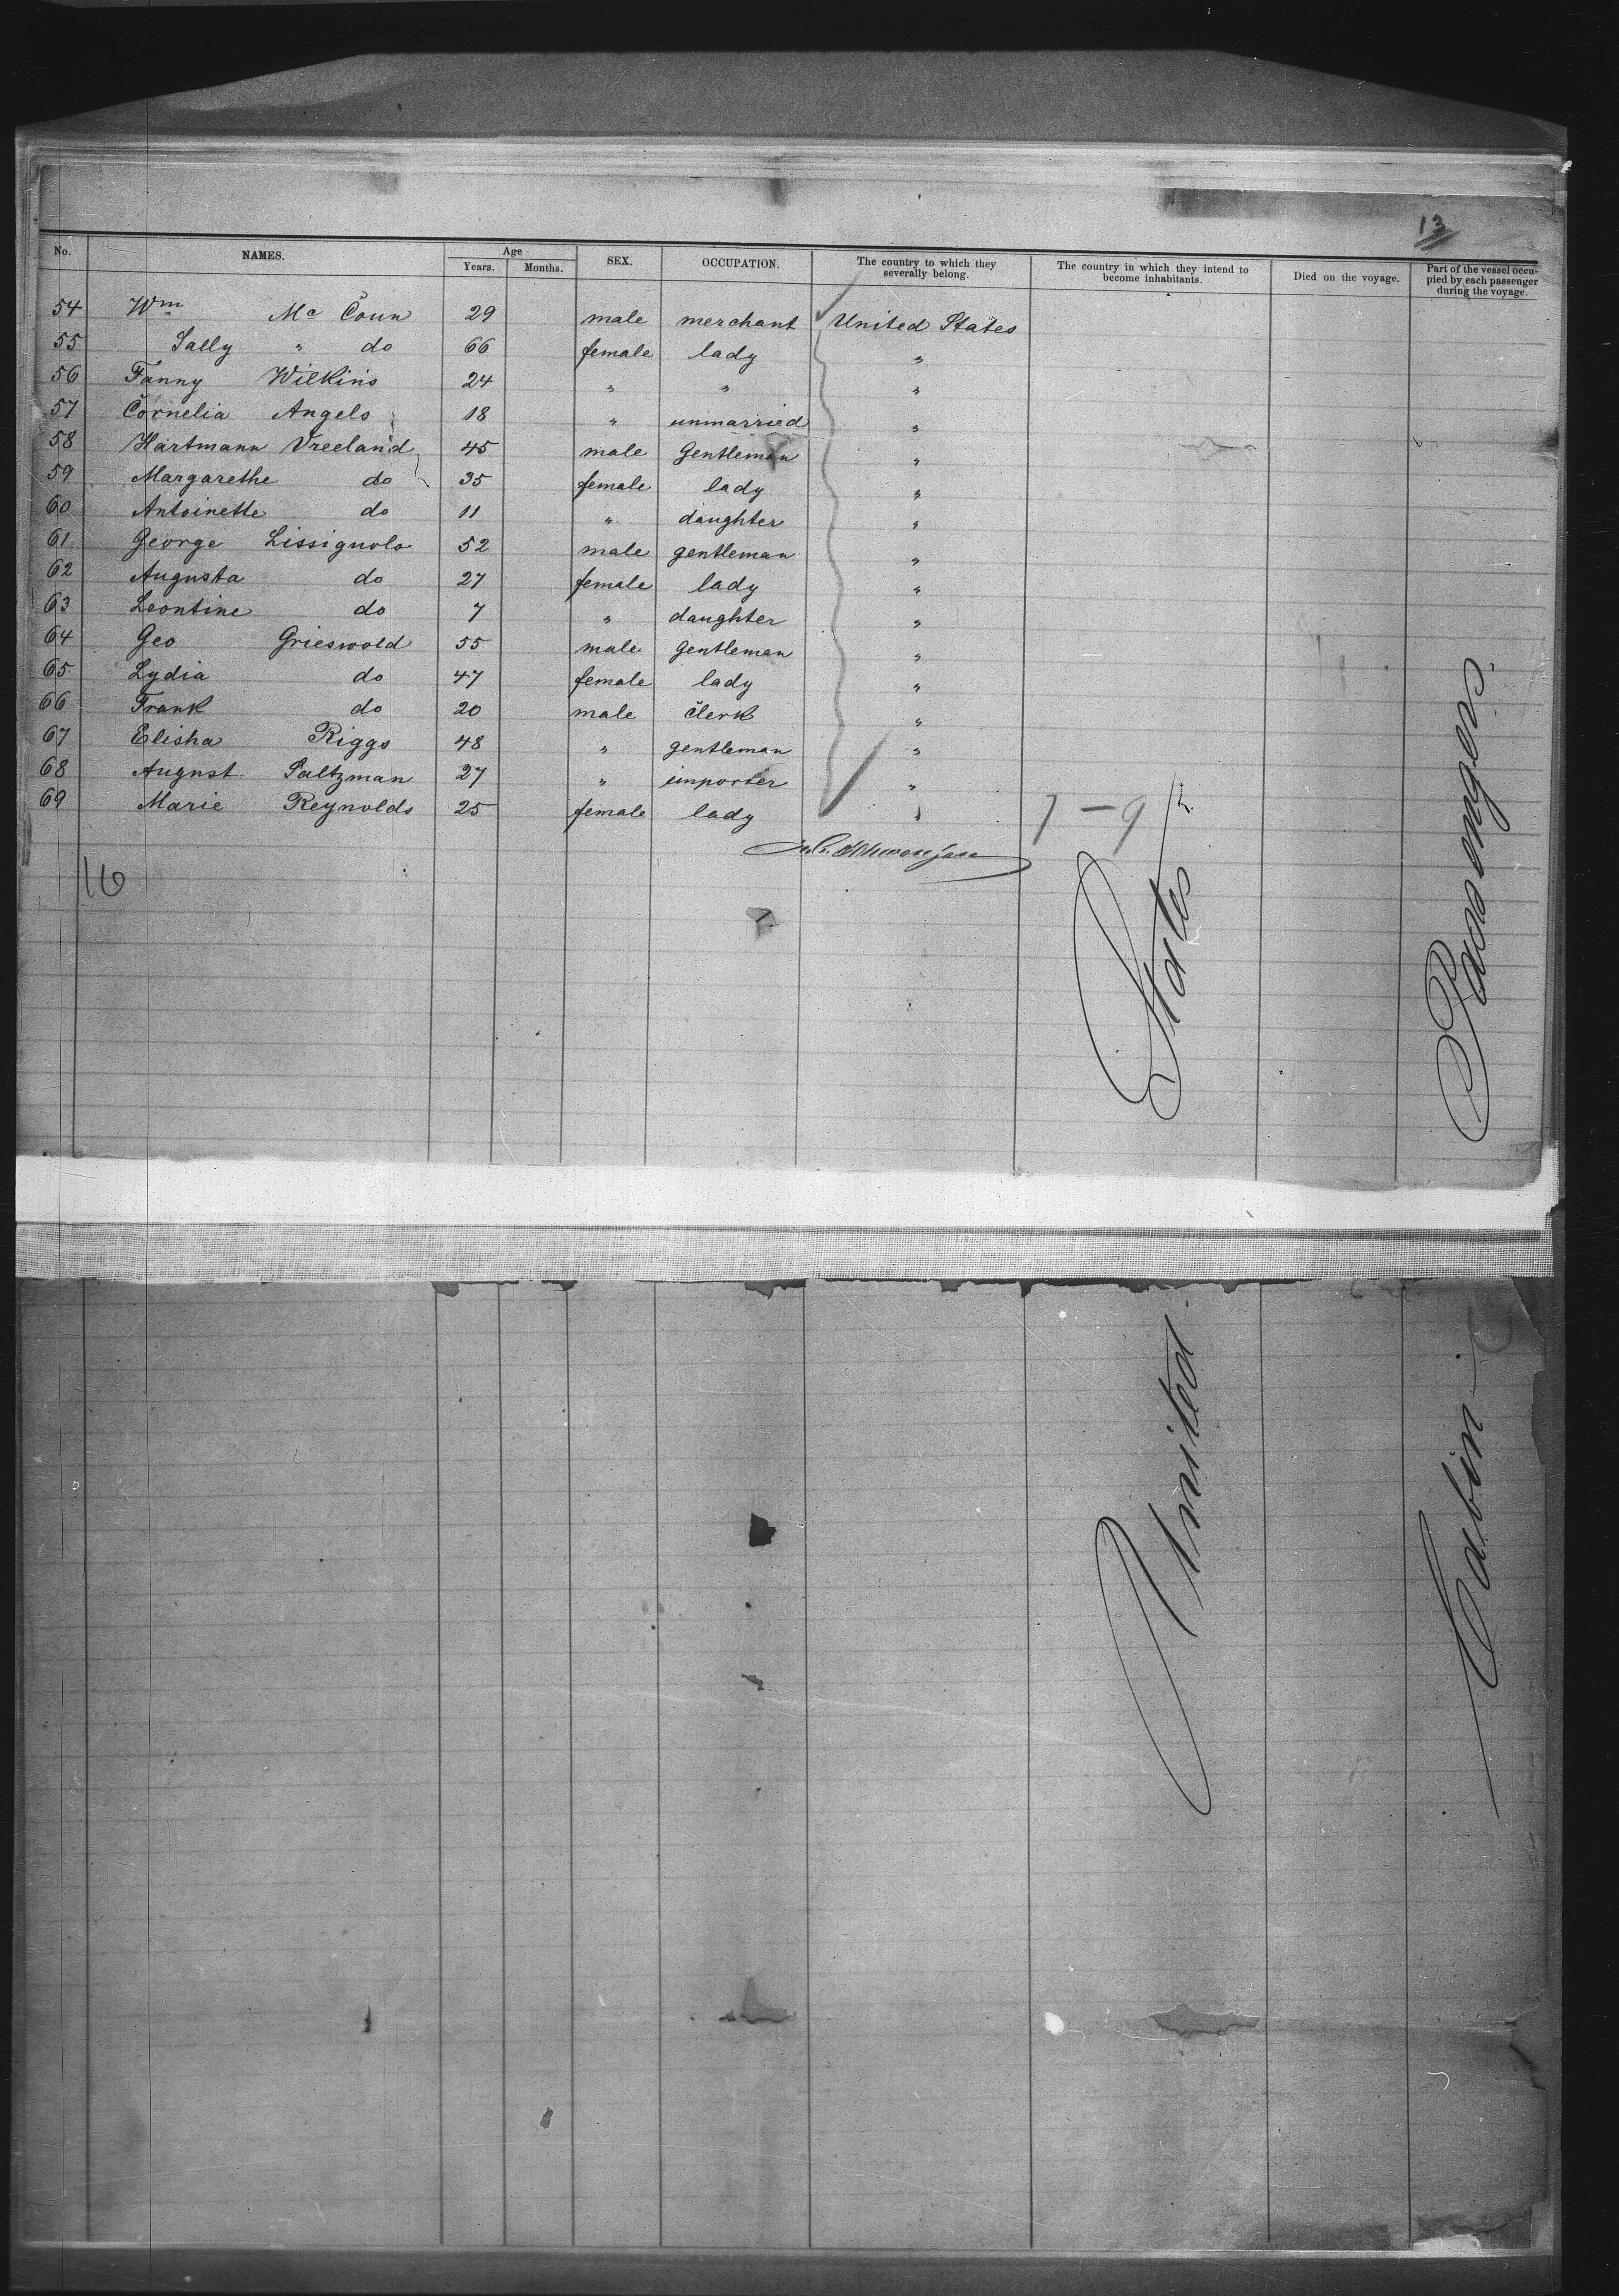 13
No. NAMES. Age Years. Months. SEX. OCCUPATION. The country to which they severally belong. The country in which they intend to become inhabitants. Died on the voyage. Part of the vessel occupied by each passenger during the voyage.
54 Wm Mc Coun 29 male merchant United States
55 Sally " do 66 female lady "
56 Fanny Wilkins 24 " " "
57 Cornelia Angelo 18 " unmarried "
58 Hartmann Vreeland 45 male Gentleman "
59 Margarethe do 35 female lady "
60 Antoinette do 11 " daughter "
61 George Lissignolo 52 male gentleman "
62 Augusta do 27 female lady "
63 Leontine do 7 " daughter "
64 Geo Grieswold 55 male gentleman "
65 Lydia do 47 female lady "
66 Frank do 20 male Clerk "
67 Elisha Riggs 48 " gentleman "
68 August Saltzman 27 " importer "
69 Marie Reynolds 25 female lady "
16
United States
Cabin Passengers.